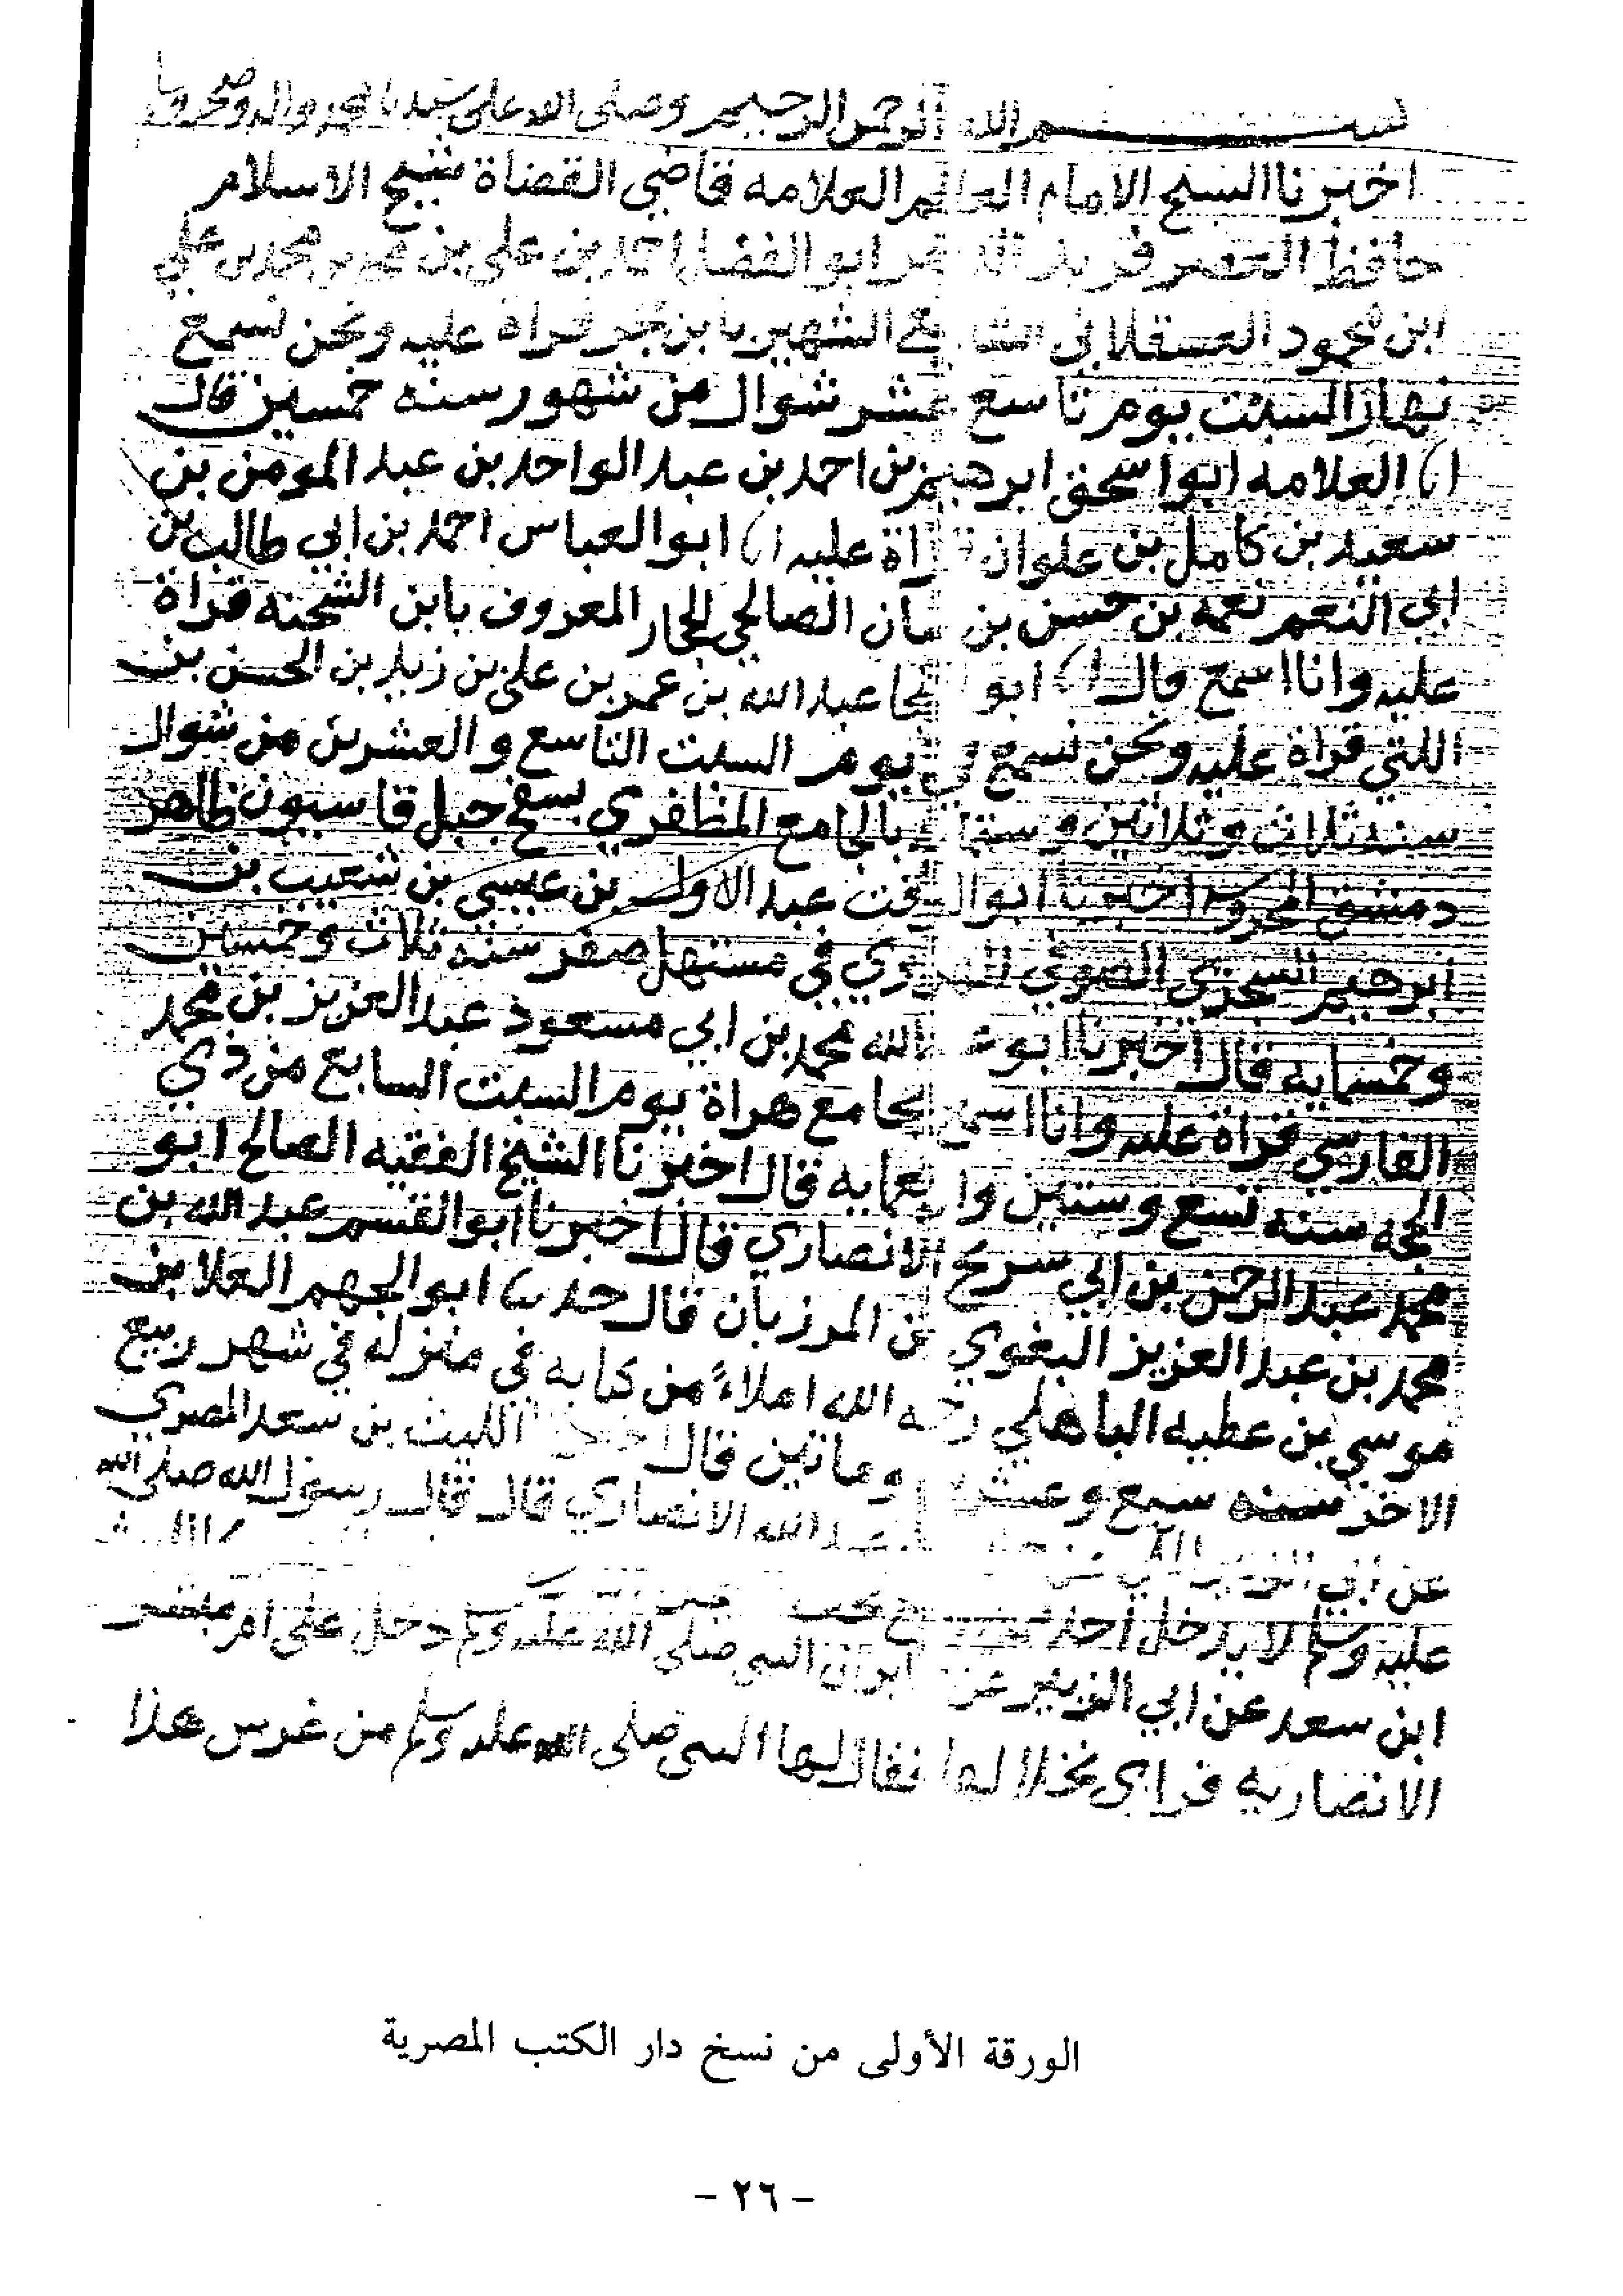 بســـم الله الرحمن الرحيم وصلى الله على سيدنا محمد واله وصحبه
اخبرنا الشيخ الامام العالم العلامه قاضي القضاة شيخ الاسلام
حافظ العصر فريد ابو الفضل احمد بن علي بن محمد بن محمد بن علي
ابن محمود العسقلاني الشافعي الشهير بابن حجر قراة عليه ونحن نسمع
نهار السبت يوم تاسع عشر شوال من شهور سنه خمسين قال
انا العلامه ابو اسحق ابرهيم بن احمد بن عبد الواحد بن عبد المومن بن
سعيد بن كامل بن علوان قراة عليه انا ابو العباس احمد بن ابي طالب بن
ابي النعم نعمه بن حسن بن بيان الصالحي الحجار المعروف بابن الشحنه قراة
عليه وانا اسمع قال انا ابو المنجا عبد الله بن عمر بن علي بن زيد بن الحسن بن
اللتي قراة عليه ونحن نسمع في يوم السبت التاسع والعشرين من شوال
سنه ثلاث وثلاثين وستمايه بالجامع المظفري بسفح جبل قاسيون ظاهر
دمشق المحروسه اخبرنا ابو الوقت عبد الاول بن عيسي بن شعيب بن
ابرهيم السجزي الصوفي الهروي في مستهل صفر سنه ثلاث وخمسين
وخمسمايه قال اخبرنا ابو عبد الله محمد بن ابي مسعود عبد العزيز بن محمد
الفارسي قراة عليه وانا اسمع بجامع هراة يوم السبت السابع من ذي
الحجه سنه تسع وستين واربعمايه قال اخبرنا الشيخ الفقيه الصالح ابو
محمد عبد الرحمن بن ابي سريح الانصاري قال اخبرنا ابو القسم عبد الله بن
محمد بن عبد العزيز البغوي بن المرزبان قال حدثنا ابو الجهم العلا بن
موسي بن عطيه الباهلي رحمه الله املاءً من كتابه في منزله في شهر ربيع
الاخر سنه سبع وعشرين وماتين قال الليث بن سعد المصري
عن ابي الزبير عبد الله الانصاري قال قال رسول الله صلى الله
عليه وسلم لا يدخل احد
ابن سعد عن ابي الزبير عن ان النبي صلى الله عليه وسلم دخل على ام مبشر
الانصاريه فراى نخلا لها فقال لها النبي صلى الله عليه وسلم من غرس هذا
الورقة الأولى من نسخ دار الكتب المصرية
- ٢٦ -